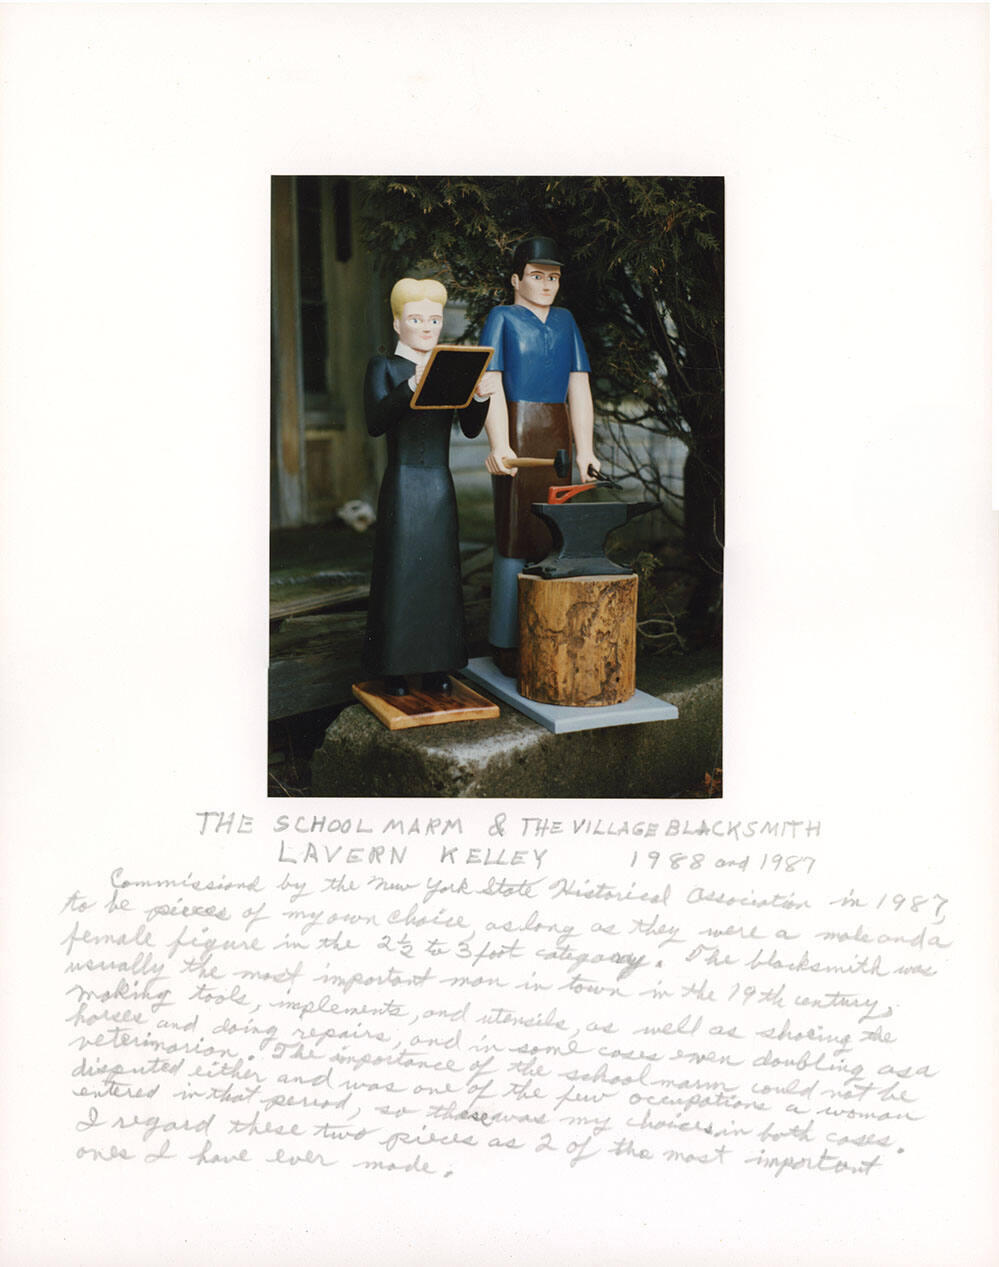 THE SCHOOL MARM & THE VILLAGE BLACKSMITH
LAVERN KELLEY 1988 and 1987
Commissiond by the New York State Historical Association in 1987,
to be pieces of my own choice, as long as they were a male and a
female figure in the 2 1/2 to 3 foot category. The blacksmith was
usually the most important man in town in the 19th century,
making tools, implements, and utensils, as well as shoeing the
horses and doing repairs, and in some cases even doubling as a
veterinarian. The importance of the school marm could not be
disputed either and was one of the few occupations a woman
entered in that period, so these was my choices in both cases.
I regard these two pieces as 2 of the most important
ones I have ever made.